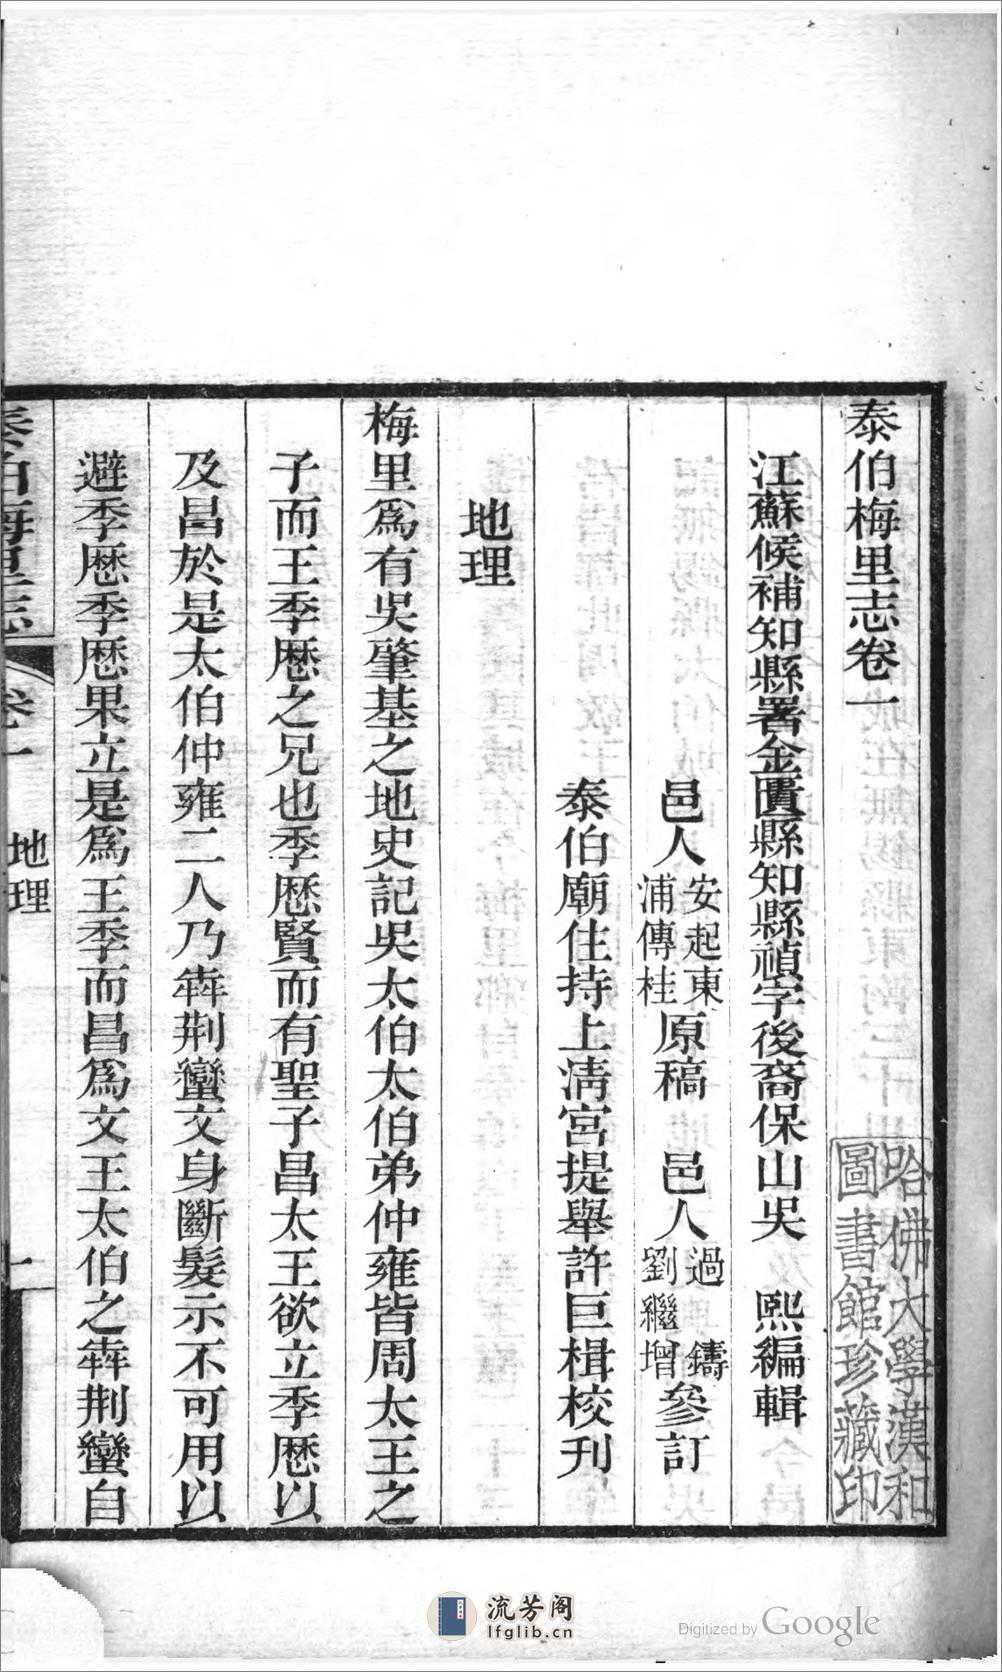 泰伯梅里志卷一
江蘇候補知縣署金匱縣知縣禎字後裔保山吳　熙編輯
邑人安起東浦傳桂原稿　邑人過　鑄劉繼增參訂
泰伯廟住持上清宮提舉許巨楫校刊
地理
梅里爲有吳肇基之地史記吳太伯太伯弟仲雍皆周太王之
子而王季歷之兄也季歷賢而有聖子昌太王欲立季歷以
及昌於是太伯仲雍二人乃犇荆蠻文身斷髮示不可用以
避季歷季歷果立是爲王季而昌爲文王太伯之犇荆蠻自
泰伯梅里志　卷一　地理　一
哈佛大學漢和
圖書館珍藏印
流芳阁
lfglib.cn
Digitized by Google